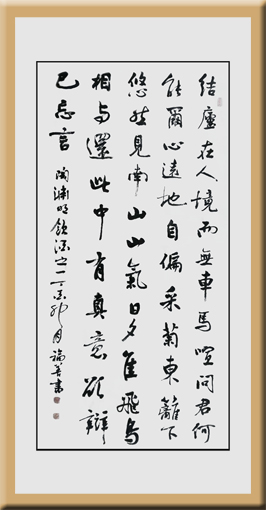 結廬在人境而無車馬喧問君何
能爾心遠地自偏采菊東籬下
悠然見南山山氣日夕佳飛鳥
相與還此中有真意欲辯
已忘言
陶淵明飲酒之一丁亥秋月書